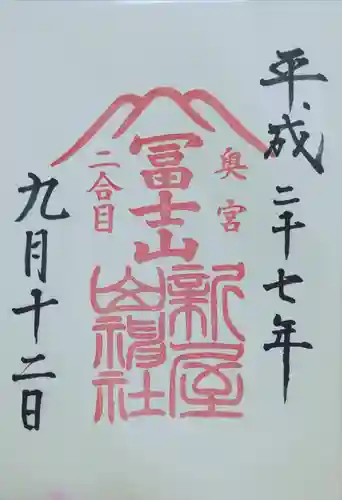 平成二十七年
奥宮
冨士山
二合目
新屋
山神社
九月十二日